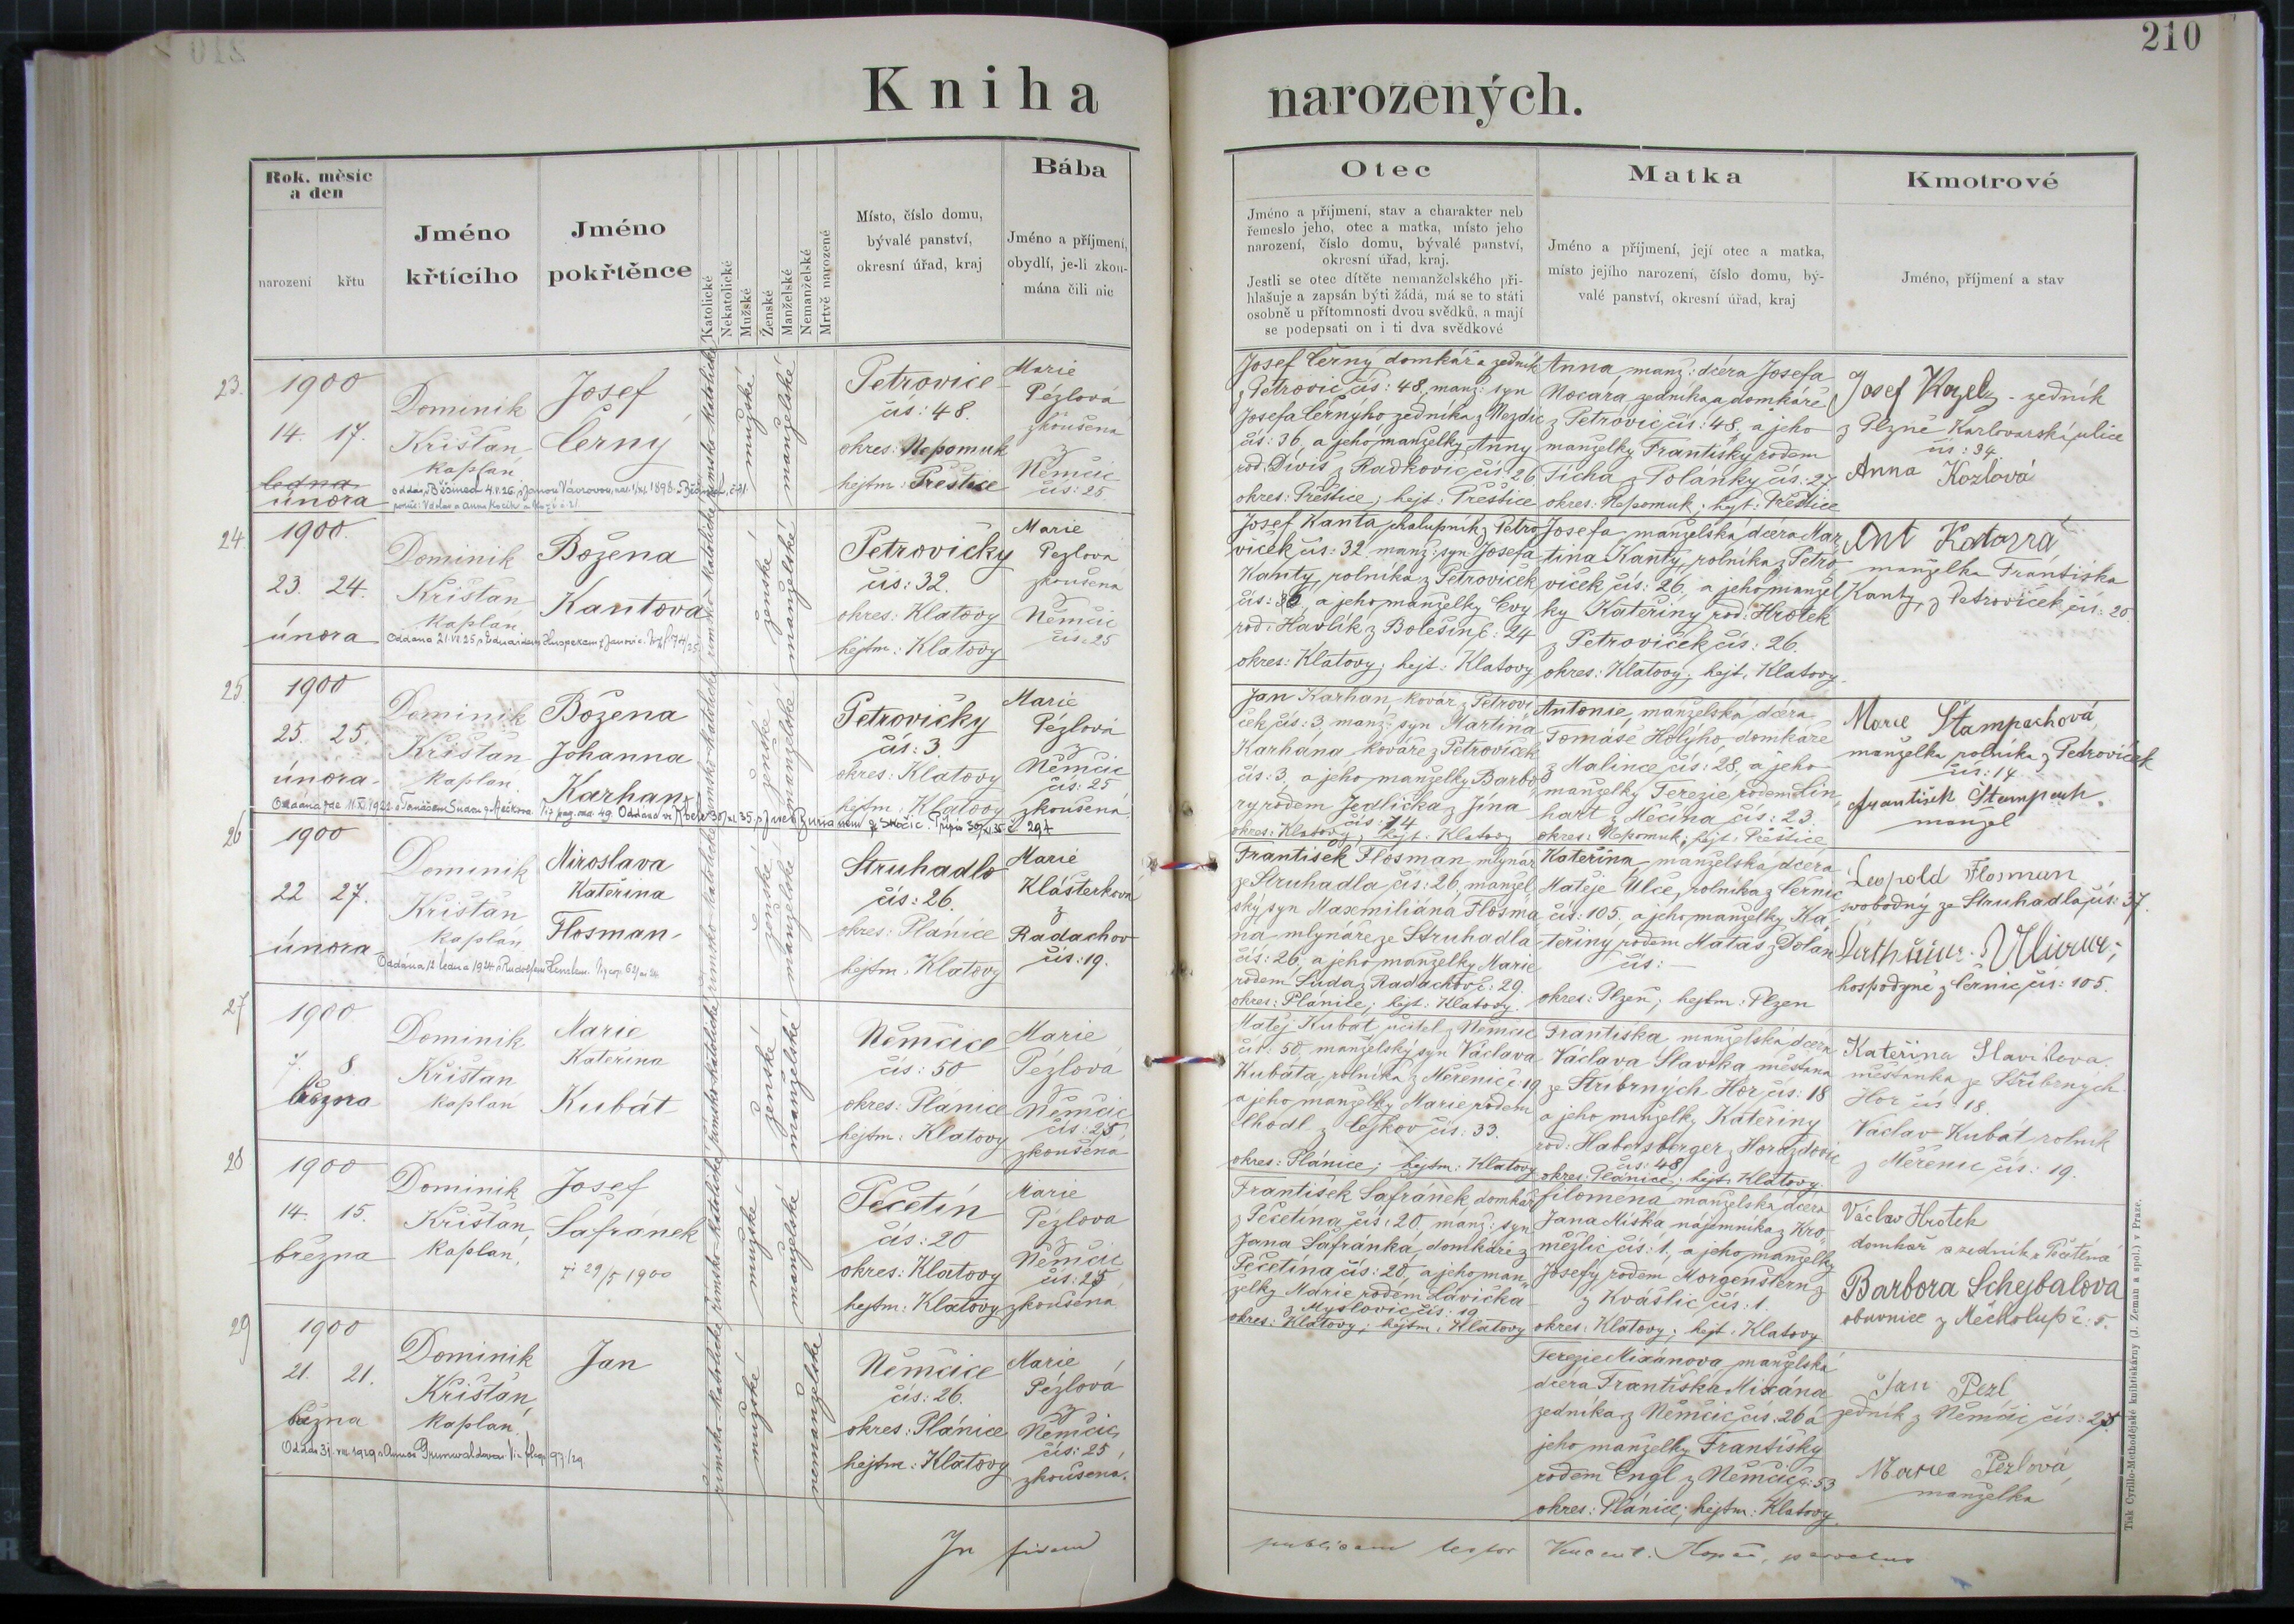 210
Kniha narozených.
Rok, měsíc a den
narození
křtu
Jméno křtícího
Jméno pokřtěnce
Katolické
Nekatolické
Mužské
Ženské
Manželské
Nemanželské
Mrtvě narozené
Místo, číslo domu,
bývalé panství,
okresní úřad, kraj
Bába
Jméno a příjmení,
obydlí, je-li zkou-
mána čili nic
Otec
Jméno a příjmení, stav a charakter neb
řemeslo jeho, otec a matka, místo jeho
narození, číslo domu, bývalé panství,
okresní úřad, kraj.
Jestli se otec dítěte nemanželského při-
hlašuje a zapsán býti žádá, má se to státi
osobně u přítomnosti dvou svědků, a mají
se podepsati on i ti dva svědkové
Matka
Jméno a příjmení, její otec a matka,
místo jejího narození, číslo domu, bý-
valé panství, okresní úřad, kraj
Kmotrové
Jméno, příjmení a stav
23.
1900
14. 17.
ledna
února
Dominik
Křišťan
kaplan
Josef
Černý
římsko-katolické
mužské
manželské
Petrovice
čís: 48.
okres: Nepomuk
hejtm: Přeštice
Marie
Pézlová
zkoušena
z
Němčic
čís: 25
Josef Černý domkář a zedník
z Petrovic čís: 48, manž: syn
Josefa Černýho zedníka z Mezdic
čís: 36, a jeho manželky Anny
rod. Diviš z Radkovic čís: 26
okres: Přeštice; hejt: Přeštice
Anna, manž: dcera Josefa
Nocára zedníka a domkáře
z Petrovic čís: 48, a jeho
manželky Františky rodem
Tichá z Polánky čís: 27
okres: Nepomuk; hejt: Přeštice
Josef Kozel - zedník
z Plzně Karlovarská ulice
čís: 34
Anna Kozlová
24.
1900.
23. 24.
února
Dominik
Křišťan
kaplan
Božena
Kantova
římsko-katolické
ženské
manželské
Petrovičky
čís: 32.
okres: Klatovy
hejtm: Klatovy
Marie
Pezlová
zkoušená
z
Němčic
čís: 25
Josef Kanta, chalupník z Petro
viček čís: 32 manž: syn Josefa
Kanty, rolníka z Petroviček
čís: 36, a jeho manželky Evy
rod: Havlík z Bolešin č: 24
okres: Klatovy; hejt: Klatovy
Josefa manželská dcera Mar
tina Kanty, rolníka z Petro
viček čís: 26, a jeho manžel
ky Kateřiny rod: Hrotek
z Petroviček čís: 26.
okres: Klatovy, hejt, Klatovy.
manželka Františka
Kanty, z Petroviček čís: 20.
25.
1900
25. 25.
února
Dominik
Křišťan
kaplan
Božena
Johanna
Karhan
římsko-katolické
ženské
manželské
Petrovičky
čís: 3
okres: Klatovy
hejtm: Klatovy
Marie
Pézlová
z
Němčic
čís: 25
zkoušená
Jan Karhan, kovář z Petrovi
ček čís: 3, manž: syn Martina
Karhana kováře z Petroviček
čís: 3, a jeho manželky Barbo
ry rodem Jedlička z Jina
čís: 14
okres: Klatovy; hejt: Klatovy
Antonie, manželská dcera
Tomáše Holýho domkáře
z Malince čís: 28, a jeho
manželky Terezie rodem Lin
hart z Měčína čís: 23.
okres: Nepomuk; hejt: Přeštice
Marie Štampachová,
manželka rolníka z Petroviček
čís: 14.
František Štampach
manžel
26
1900
22 27.
února
Dominik
Křišťan
kaplan
Miroslava
Kateřina
Flosman
římsko-katolické
ženské
manželské
Struhadlo
čís: 26.
okres: Plánice
hejtm: Klatovy
Marie
Klášterkova
z
Radachov
čís: 19.
František Flosman, mlynář
ze Struhadla čís: 26, manžel
ský syn Maxmiliána Flosma
na mlynáře ze Struhadla
čís: 26, a jeho manželky Marie
rodem Suda z Radachov č: 29.
okres: Plánice; hejt: Klatovy.
Kateřina manželská dcera
Matěje Ulče, rolníka z Černic
čís: 105. a jeho manželky Ka
teřiny rodem Matas z Dolan
čís: -
okres: Plzeň; hejtm: Plzen
Leopold Flosman
svobodný ze Struhadla čís: 37.
hospodyně z Černic čís: 105.
27
1900
7. 8
března
Dominik
Křišťan
kaplan
Marie
Kateřina
Kubát
římsko-katolické
ženské
manželské
Němčice
čís: 50
okres: Plánice
hejtm: Klatovy
Marie
Pézlová
z
Němčic
čís: 25
zkoušená
Matěj Kubát, učitel z Němčic
čís: 50, manželský syn Václava
Kubáta, rolníka z Měřenic č: 19
a jeho manželky Marie rodem
Chodl z Čejkov čís: 33.
okres: Plánice; hejtm: Klatovy
Františka manželská dcera
Václava Slavíka, měšťana
ze Stříbrných Hor čís: 18
a jeho manželky Kateřiny
rod: Habersberger z Horažďovic
čís: 48
okres: Plánice; hejt. Klatovy.
Kateřina Slavíkova
měšťanka ze Stříbrných
Hor čís 18.
Václav Kubát rolník
z Měřenic čís: 19.
28
1900
14. 15.
března
Dominik
Křišťan,
kaplan,
Josef
Šafránek
29/5 1900
římsko-katolické
mužské
manželské
Pečetín
čís: 20
okres: Klatovy
hejtm: Klatovy
Marie
Pézlova
z
Němčic
čís: 25
zkoušená
František Šafránek, domkář
z Pečetína čís: 20, manž: syn
Jana Šafránka, domkáře z
Pečetína čís: 20 a jeho man
želky Marie rodem Lavička
z Myslovic čís: 19
okres: Klatovy; hejtm: Klatovy
Filomena manželská dcera
Jana Miška nájemníka z Kro
měžlic čís: 1, a jeho manželky
Josefy rodem Morgenstern
z Kvášlic čís: 1.
okres: Klatovy; hejt: Klatovy
Václav Hrotek
domkář a zedník z Pečetína
Barbora Schejbalova
obuvnice z Měcholup č: 5.
29
1900
21. 21.
března
Dominik
Křišťan,
kaplan.
Jan
římsko-katolické
mužské
nemanželské
Němčice
čís: 26.
okres: Plánice
hejtm: Klatovy
Marie
Pézlová
z
Němčic
čís: 25
zkoušená.
Terezie Mixánova, manželská
dcera Františka Mixána
zedníka z Němčic čís: 26 a
jeho manželky Františky
rodem Engl z Němčic č: 53
okres: Plánice; hejtm: Klatovy.
Jan Pezl
zedník z Němčic čís: 25.
Marie Pezlová,
manželka
In fidem publicam testor Vincent. Kopač, parochus
Tisk Cyrillo-Methodějské knihtiskárny (J. Zeman a spol.) v Praze.